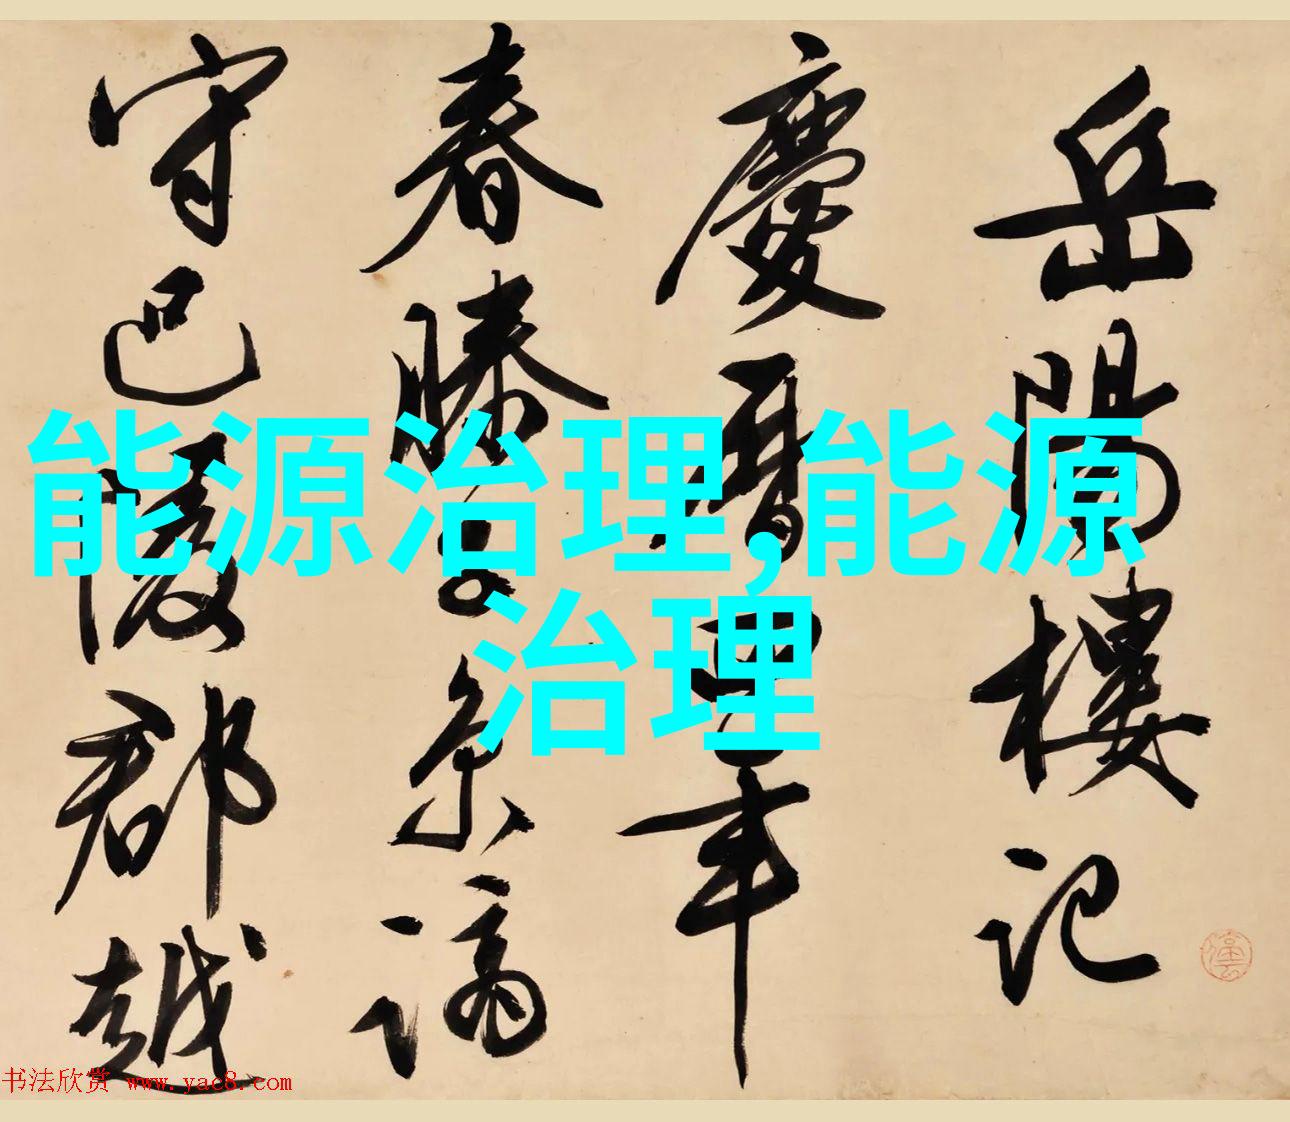 岳陽樓記
慶曆四年
春滕子京謫
守巴陵郡越
能源治理,能源
治理
书法欣赏 www.yac8.com